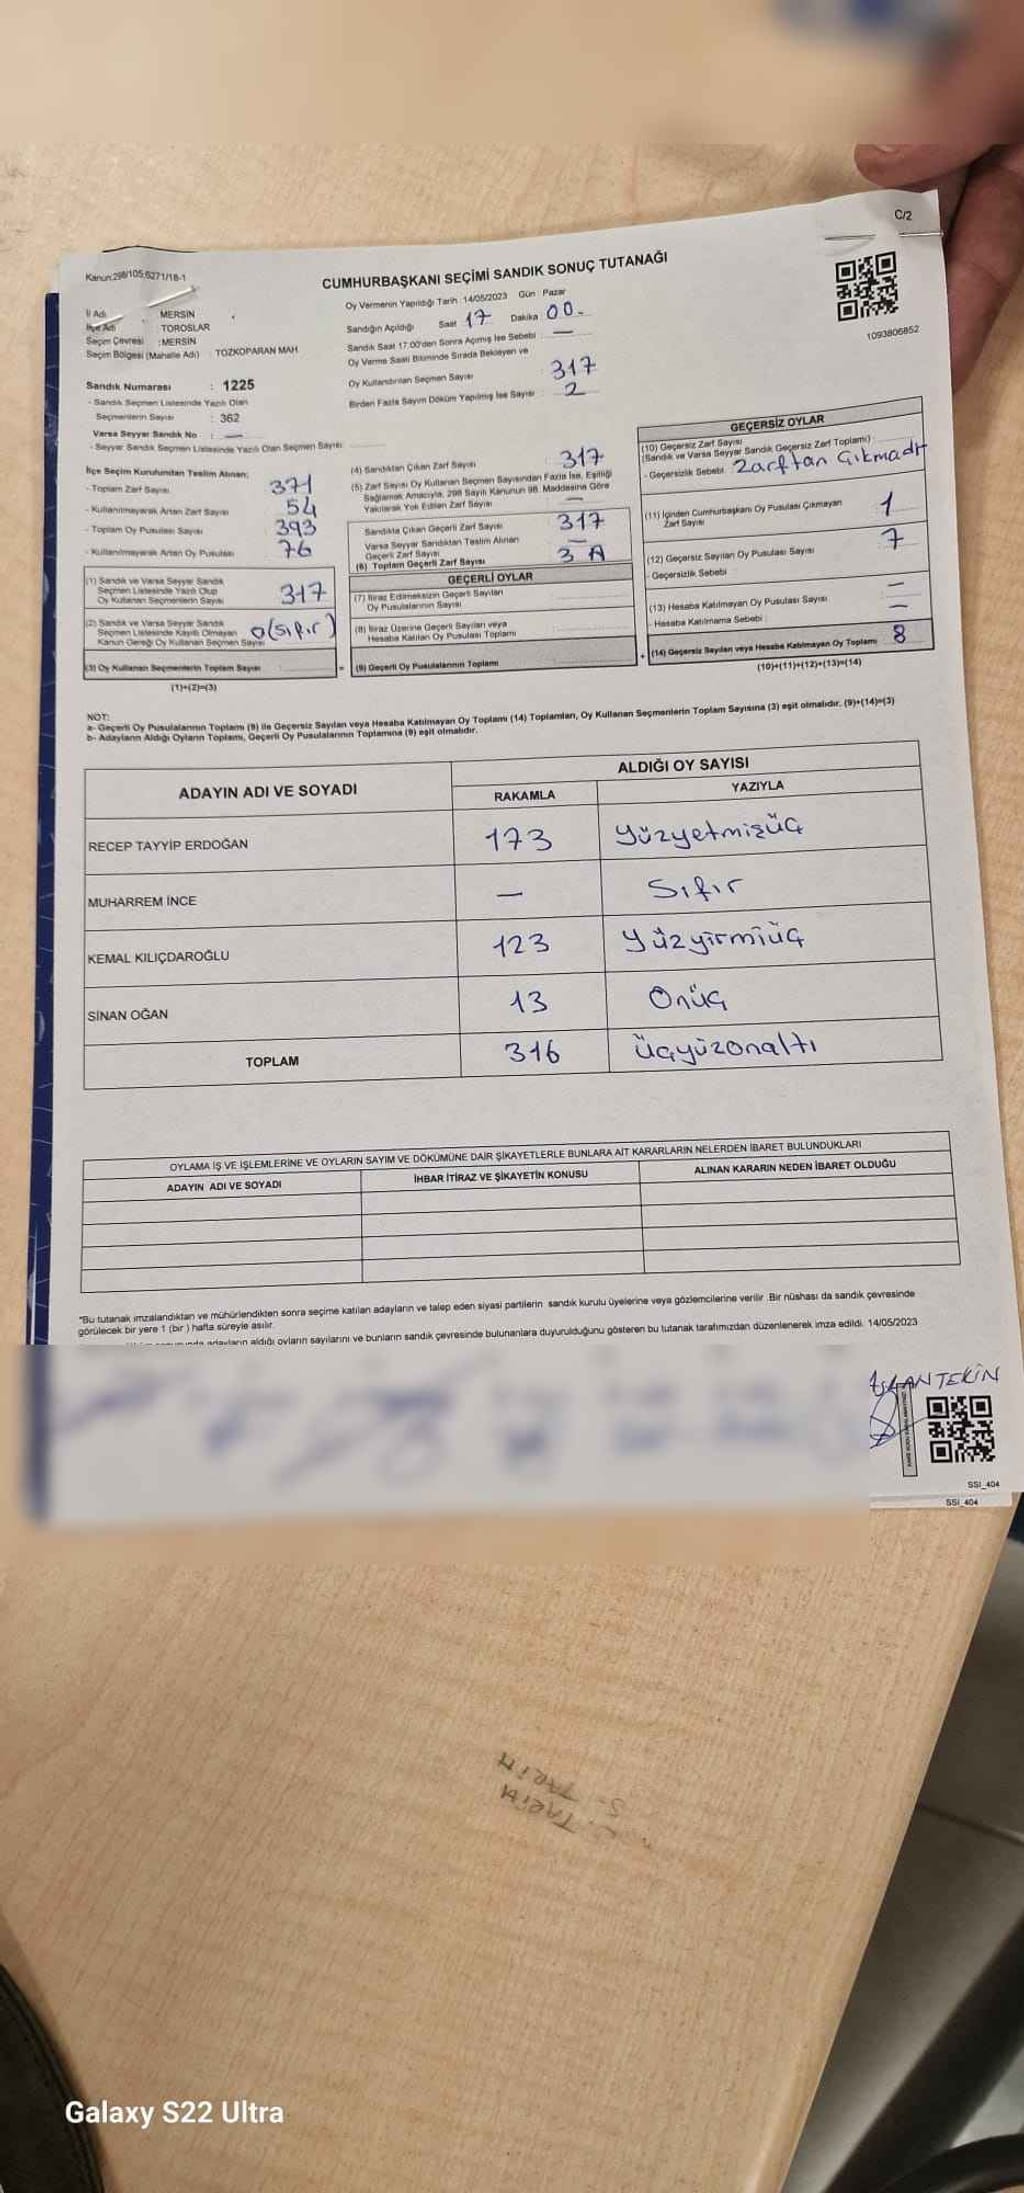 C/2
Kanun:298/105;6271/18-1
CUMHURBAŞKANI SEÇİMİ SANDIK SONUÇ TUTANAĞI
1093806852
İl Adı : MERSİN
İlçe Adı : TOROSLAR
Seçim Çevresi : MERSİN
Seçim Bölgesi (Mahalle Adı) TOZKOPARAN MAH
Sandık Numarası : 1225
- Sandık Seçmen Listesinde Yazılı Olan
Seçmenlerin Sayısı : 362
Varsa Seyyar Sandık No : —
- Seyyar Sandık Seçmen Listesinde Yazılı Olan Seçmen Sayısı
Oy Vermenin Yapıldığı Tarih :14/05/2023 Gün : Pazar
Sandığın Açıldığı Saat 17 Dakika 00.
Sandık Saat 17:00'den Sonra Açılmış İse Sebebi : —
Oy Verme Saati Bitiminde Sırada Bekleyen ve
Oy Kullandırılan Seçmen Sayısı : 317
Birden Fazla Sayım Döküm Yapılmış İse Sayısı : 2
İlçe Seçim Kurulundan Teslim Alınan;
- Toplam Zarf Sayısı 371
- Kullanılmayarak Artan Zarf Sayısı 54
- Toplam Oy Pusulası Sayısı 393
- Kullanılmayarak Artan Oy Pusulası 76
(1) Sandık ve Varsa Seyyar Sandık
Seçmen Listesinde Yazılı Olup
Oy Kullanan Seçmenlerin Sayısı 317
(2) Sandık ve Varsa Seyyar Sandık
Seçmen Listesinde Kayıtlı Olmayan
Kanun Gereği Oy Kullanan Seçmen Sayısı 0(sıfır)
(3) Oy Kullanan Seçmenlerin Toplam Sayısı
(1)+(2)=(3)
(4) Sandıktan Çıkan Zarf Sayısı : 317
(5) Zarf Sayısı Oy Kullanan Seçmen Sayısından Fazla İse, Eşitliği
Sağlamak Amacıyla, 298 Sayılı Kanunun 98. Maddesine Göre
Yakılarak Yok Edilen Zarf Sayısı —
Sandıkta Çıkan Geçerli Zarf Sayısı 317
Varsa Seyyar Sandıktan Teslim Alınan
Geçerli Zarf Sayısı —
(6) Toplam Geçerli Zarf Sayısı
GEÇERLİ OYLAR
(7) İtiraz Edilmeksizin Geçerli Sayılan
Oy Pusulalarının Sayısı
(8) İtiraz Üzerine Geçerli Sayılan veya
Hesaba Katılan Oy Pusulası Toplamı
= (9) Geçerli Oy Pusulalarının Toplamı
GEÇERSİZ OYLAR
(10) Geçersiz Zarf Sayısı
(Sandık ve Varsa Seyyar Sandık Geçersiz Zarf Toplamı) :
- Geçersizlik Sebebi : Zarftan Çıkmadı
(11) İçinden Cumhurbaşkanı Oy Pusulası Çıkmayan
Zarf Sayısı 1
(12) Geçersiz Sayılan Oy Pusulası Sayısı 7
- Geçersizlik Sebebi
(13) Hesaba Katılmayan Oy Pusulası Sayısı —
- Hesaba Katılmama Sebebi : —
+ (14) Geçersiz Sayılan veya Hesaba Katılmayan Oy Toplamı 8
(10)+(11)+(12)+(13)=(14)
NOT:
a- Geçerli Oy Pusulalarının Toplamı (9) ile Geçersiz Sayılan veya Hesaba Katılmayan Oy Toplamı (14) Toplamları, Oy Kullanan Seçmenlerin Toplam Sayısına (3) eşit olmalıdır. (9)+(14)=(3)
b- Adayların Aldığı Oyların Toplamı, Geçerli Oy Pusulalarının Toplamına (9) eşit olmalıdır.
ADAYIN ADI VE SOYADI
ALDIĞI OY SAYISI
RAKAMLA YAZIYLA
RECEP TAYYİP ERDOĞAN 173 Yüzyetmişüç
MUHARREM İNCE — Sıfır
KEMAL KILIÇDAROĞLU 123 Yüzyirmiüç
SİNAN OĞAN 13 Onüç
TOPLAM 316 Üçyüzonaltı
OYLAMA İŞ VE İŞLEMLERİNE VE OYLARIN SAYIM VE DÖKÜMÜNE DAİR ŞİKAYETLERLE BUNLARA AİT KARARLARIN NELERDEN İBARET BULUNDUKLARI
ADAYIN ADI VE SOYADI İHBAR İTİRAZ VE ŞİKAYETİN KONUSU ALINAN KARARIN NEDEN İBARET OLDUĞU
"Bu tutanak imzalandıktan ve mühürlendikten sonra seçime katılan adayların ve talep eden siyasi partilerin sandık kurulu üyelerine veya gözlemcilerine verilir .Bir nüshası da sandık çevresinde
görülecek bir yere 1 (bir ) hafta süreyle asılır.
adayların aldığı oyların sayılarını ve bunların sandık çevresinde bulunanlara duyurulduğunu gösteren bu tutanak tarafımızdan düzenlenerek imza edildi. 14/05/2023
TEKİN
SSI_404
SSI_404
TARİH
S. TARİH
Galaxy S22 Ultra